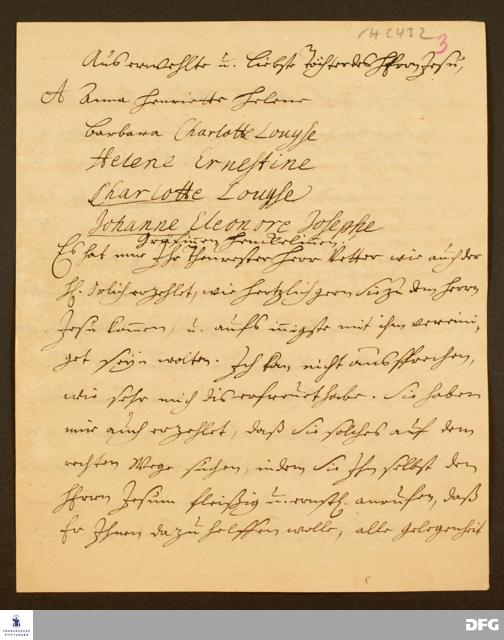 3
Auserwehlte u. liebste Töchter des HErrn Jesu,
A Anna Henriette Helene
Barbara Charlotte Louyse
Helene Ernestine
Charlotte Louyse
Johanne Eleonore Josephe
Gräfinnen Henckelinnen,
Es hat mir Ihr Theurester Herr Vetter wie auch der
H. erzehlet, wie hertzlich gern Sie zu dem Herrn
Jesu kommen, u. aufs innigste mit ihm verein-
get seyn wolten. Ich kan nicht aussprechen,
wie sehr mich dis erfreuet habe. Sie haben
mir auch erzehlet, daß Sie solches auf dem
rechten Wege suchen, indem Sie Ihn selbst den
HErrn Jesum fleißig u. ernstl. anruffen, daß
Er Ihnen dazu helffen wolle, alle Gelegenheit
FRANCKESCHE STIFTUNGEN
DFG